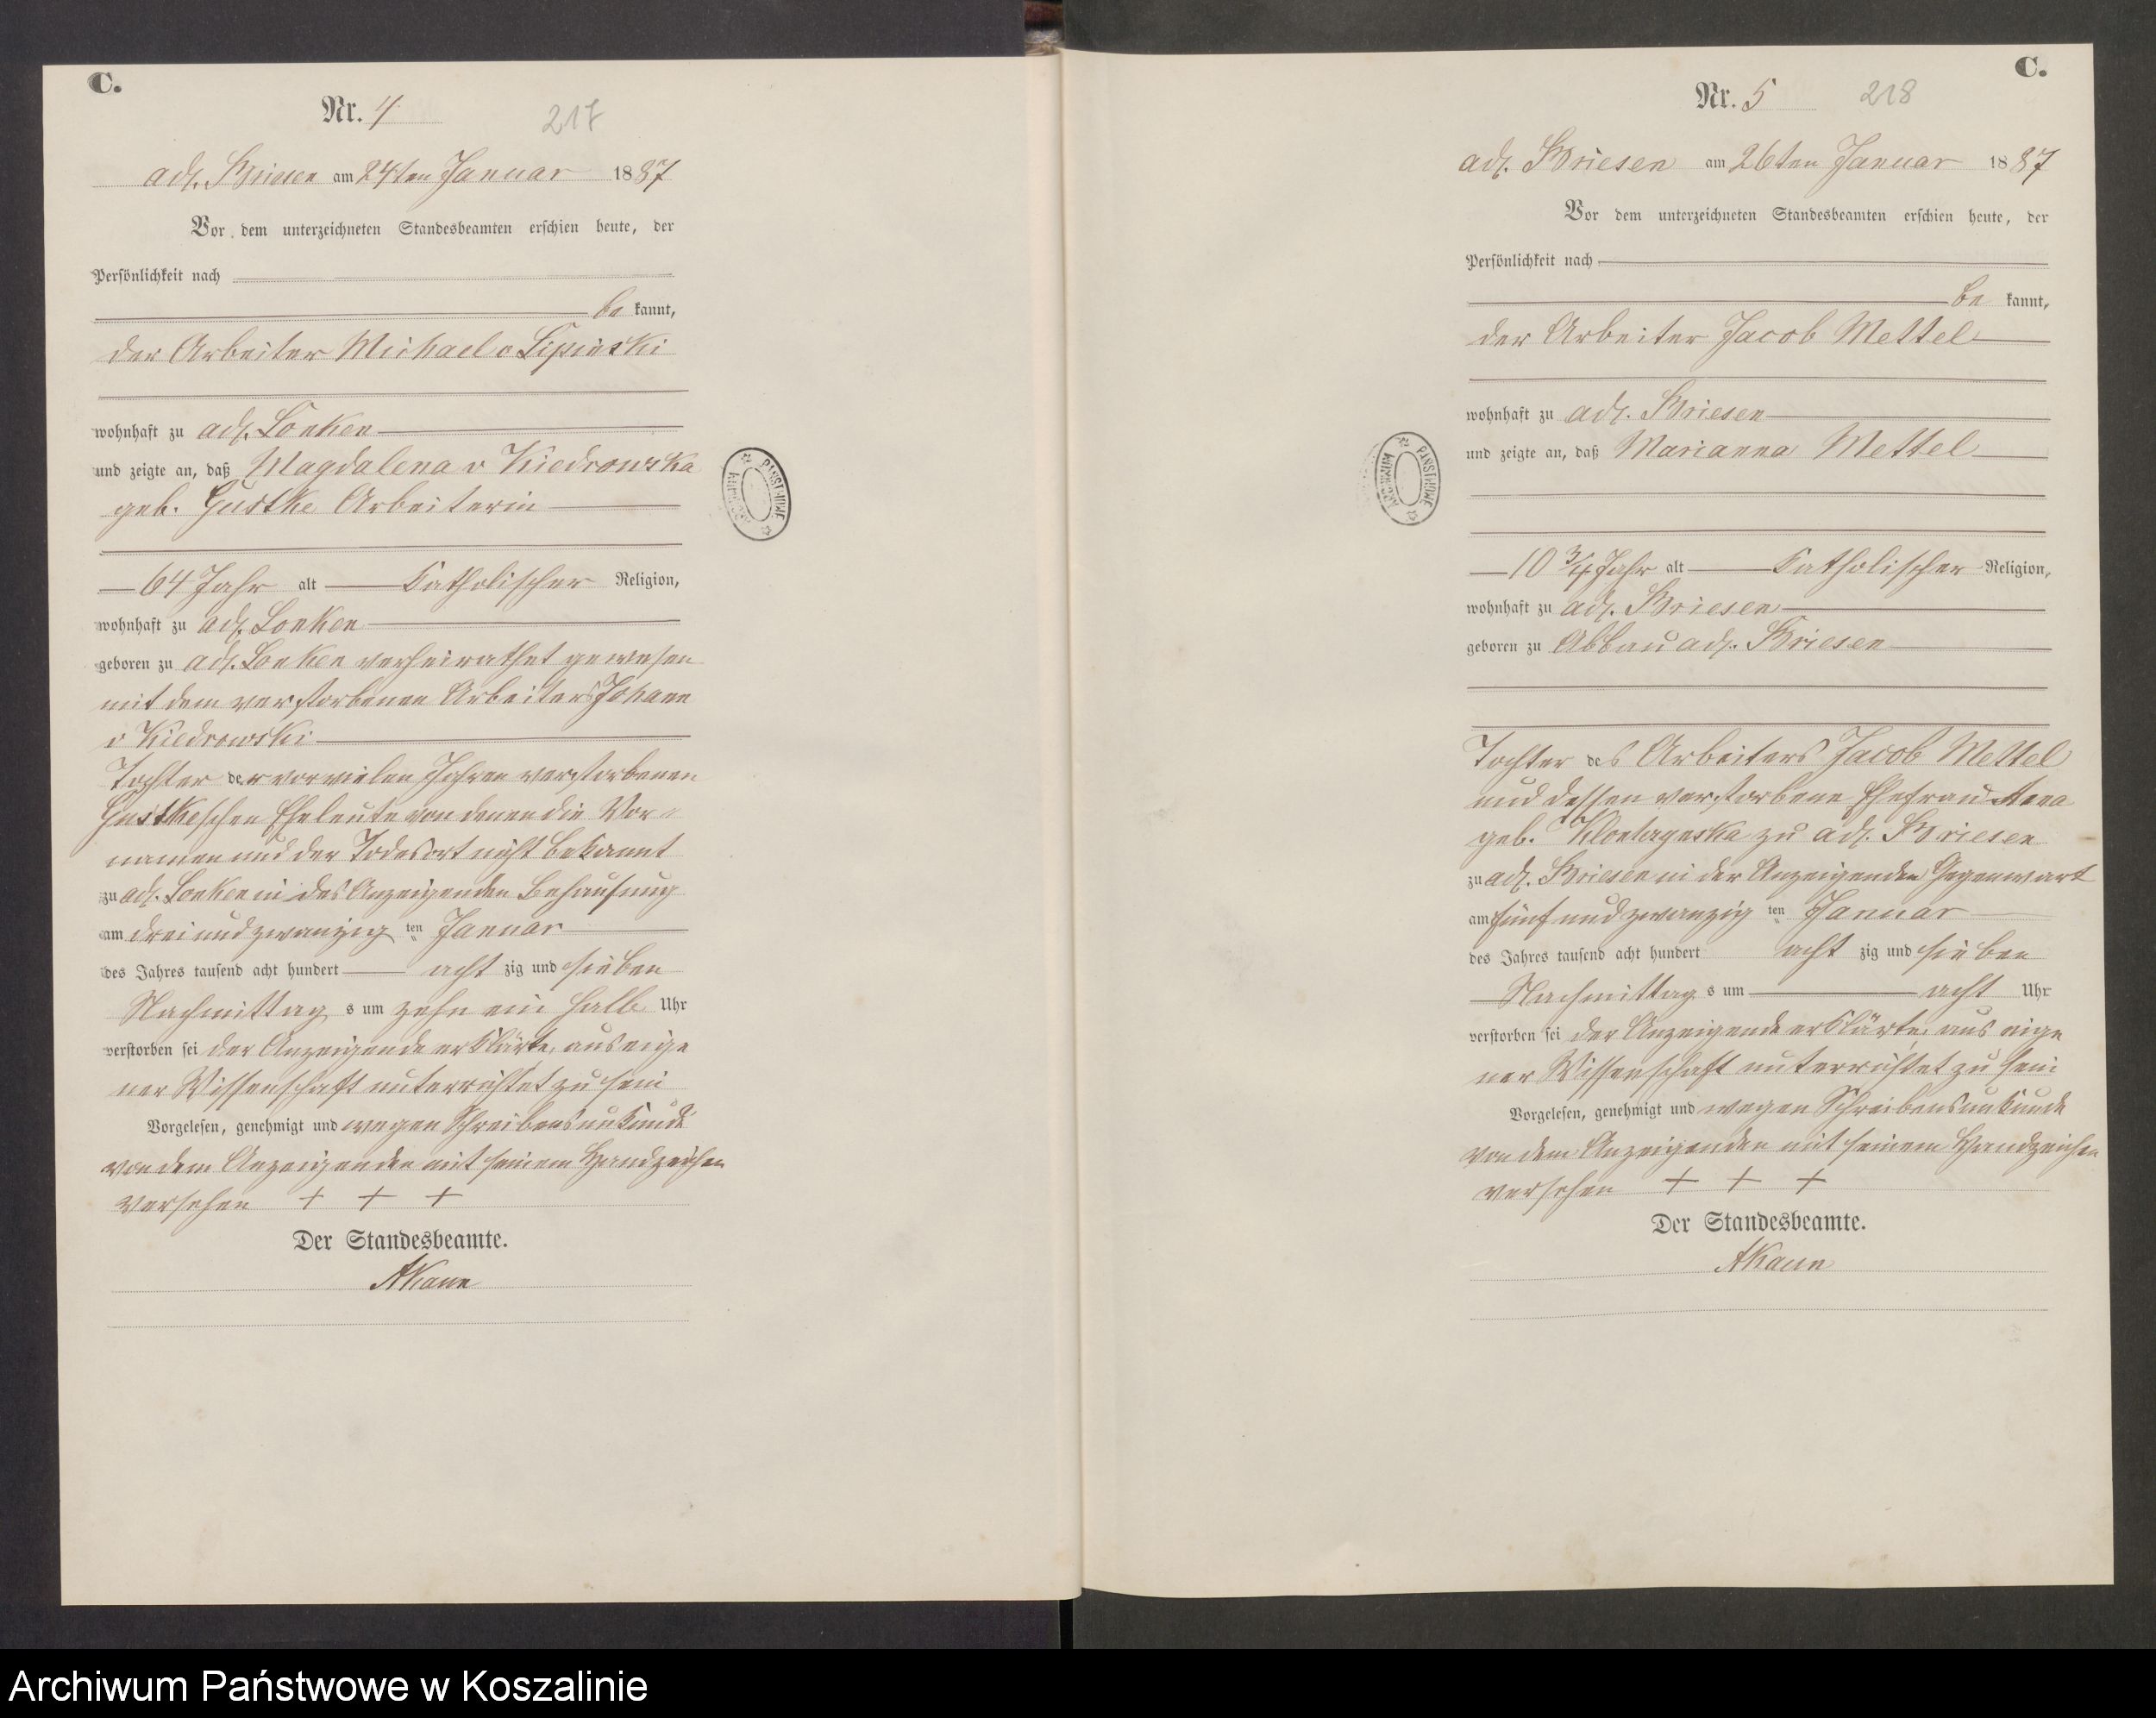 C.
Nr. 4
217
adl. Briesen am 24ten Januar 1887
Vor dem unterzeichneten Standesbeamten erschien heute, der
Persönlichkeit nach
be kannt,
der Arbeiter Michael v Lipinski
wohnhaft zu adl. Lonken
und zeigte an, daß Magdalena v Kiedrowska
geb. Gustke Arbeiterin
64 Jahr alt Katholischer Religion,
wohnhaft zu adl. Lonken
geboren zu adl. Lonken verheirathet gewesen
mit dem verstorbenen Arbeiters Johann
v Kiedrowski
Tochter der vor vielen Jahren verstorbenen
Gustkeschen Eheleute von denen die Vor-
namen und der Todesort nicht bekannt
zu adl. Lonken in des Anzeigenden Behausung
am drei und zwanzig ten Januar
des Jahres tausend acht hundert acht zig und sieben
Nachmittag s um zehn ein halb Uhr
verstorben sei der Anzeigende erklärte, aus eige
ner Wissenschaft unterrichtet zu sein
Vorgelesen, genehmigt und wegen Schreibensunkunde
von dem Anzeigenden mit seinem Handzeichen
versehen + + +
Der Standesbeamte.
AKann
ARCHIWUM PAŃSTWOWE
C.
Nr. 5
218
adl. Briesen am 26ten Januar 1887
Vor dem unterzeichneten Standesbeamten erschien heute, der
Persönlichkeit nach
be kannt,
der Arbeiter Jacob Mettel
wohnhaft zu adl. Briesen
und zeigte an, daß Marianna Mettel
10 3/4 Jahr alt Katholischer Religion,
wohnhaft zu adl. Briesen
geboren zu Abbau adl. Briesen
Tochter des Arbeiters Jacob Mettel
und dessen verstorbene Ehefrau Anna
geb. zu adl. Briesen
zu adl. Briesen in der Anzeigenden Gegenwart
am fünf und zwanzig ten Januar
des Jahres tausend acht hundert acht zig und sieben
Nachmittag s um acht Uhr
verstorben sei der Anzeigende erklärte, aus eige
ner Wissenschaft unterrichtet zu sein
Vorgelesen, genehmigt und wegen Schreibensunkunde
von dem Anzeigenden mit seinem Handzeichen
versehen + + +
Der Standesbeamte.
AKann
ARCHIWUM PAŃSTWOWE
Archiwum Państwowe w Koszalinie